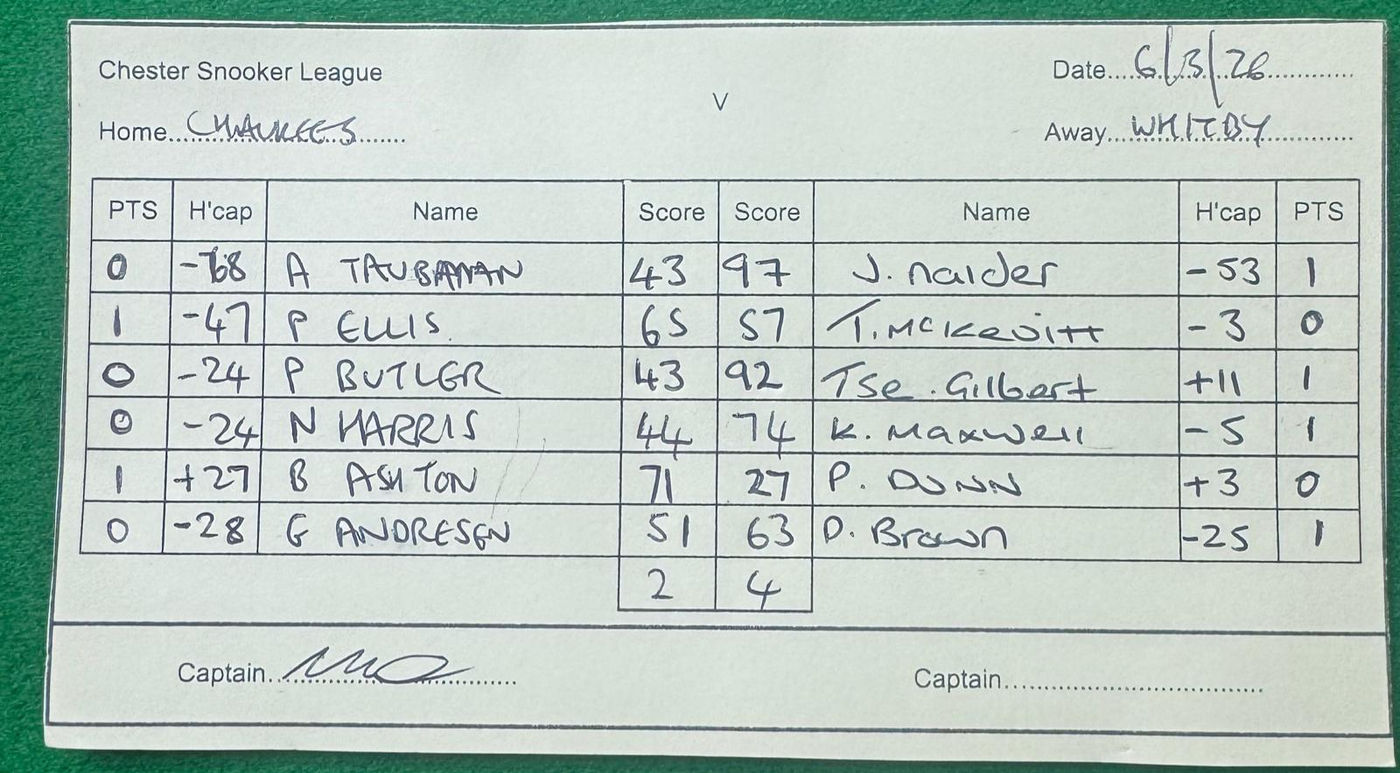 Chester Snooker League
V
Date....6/3/26............
Home..CHAULKEES.......
Away..WHITBY............
PTS H'cap Name Score Score Name H'cap PTS
0 -68 A TAUBMAN 43 97 J. nalder -53 1
1 -47 P ELLIS. 65 57 T. McKevitt -3 0
0 -24 P BUTLER 43 92 Tse. Gilbert +11 1
0 -24 N HARRIS 44 74 K. Maxwell -5 1
1 +27 B ASHTON 71 27 P. DUNN +3 0
0 -28 G ANDRESEN 51 63 D. Brown -25 1
2 4
Captain..
Captain...................................